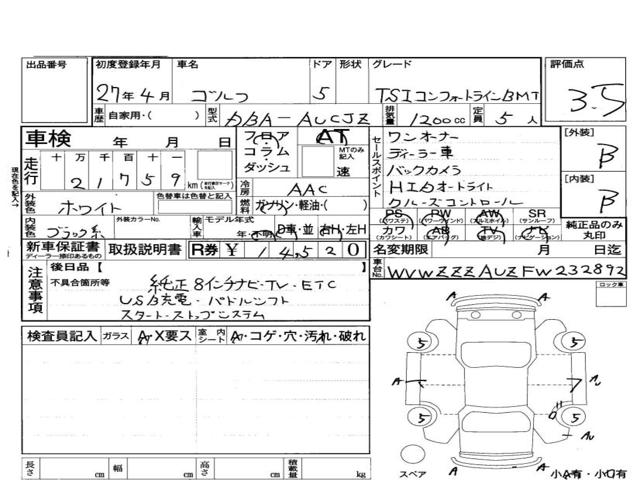 出品番号 初度登録年月 車名 ドア 形状 グレード 評価点
27年4月 ゴルフ 5 TSIコンフォートラインBMT 3.5
車歴 自家用・( ) 型式 DBA-AUCJZ 排気量 1200cc 定員 5人
車検 年 月 日
フロア コラム・ ダッシュ AT MTのみ記入 速
セールスポイント
ワンオーナー
ディーラー車
バックカメラ
HIDオートライト
クルーズコントロール
[外装] B
[内装] B
現在色を記入→
走行 十 万 千 百 十 一
2 1 7 5 9 km
冷房 AAC
燃料 ガソリン・軽油・( )
外装色 ホワイト 色替車は色替と記入
内装色 ブラック系 外装カラーNo.
輸入車 モデル年式 年・不明 D車・並 右H・左H
PS (パワステ) PW (パワーウィンド) AW (アルミホイル) SR (サンルーフ)
カワ (カワシート) AB (エアバッグ) TV (地デジ) ナビ (ナビゲーション)
純正品のみ丸印
新車保証書 ディーラー捺印あるもの 取扱説明書 R券 ¥ 14520
名変期限 月 日迄
車台No. WVWZZZAUZFW232892
注意事項
後日品【 】
不具合箇所等 純正8インチナビ・TV・ETC
USB充電・パドルシフト
スタート・ストップシステム
ロック車
検査員記入 ガラス A・X要ス 室内シート A・コゲ・穴・汚れ・破れ
A
5 5
A
5 5
A
スペア
A A
長さ cm 幅 cm 高さ cm 積載量 kg
小A有・小凹有